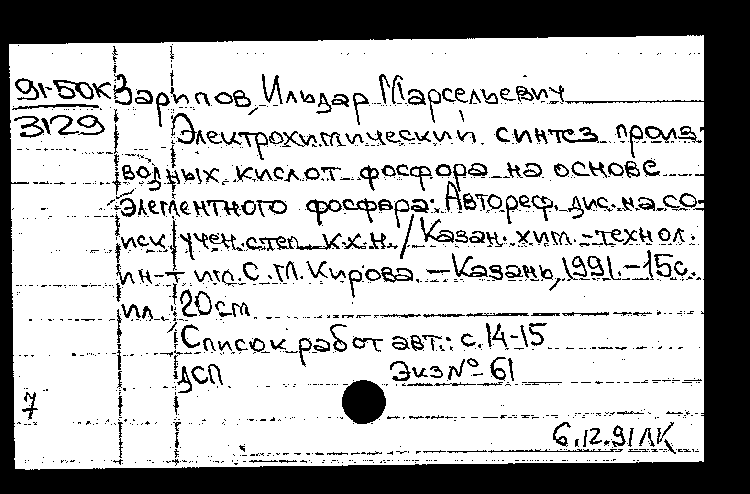 91-50К Зарипов, Ильдар Марсельевич
3129
Электрохимический синтез произ-
водных кислот фосфора на основе
элементного фосфора: Автореф. дис. на со-
иск. учен. степ. к.х.н. / Казан. хим.-технол.
ин-т им. С.М. Кирова. – Казань, 1991. – 15с.
ил. 20см
Список работ авт.: с. 14-15
ДСП Экз № 61
7
6.12.91 ЛК